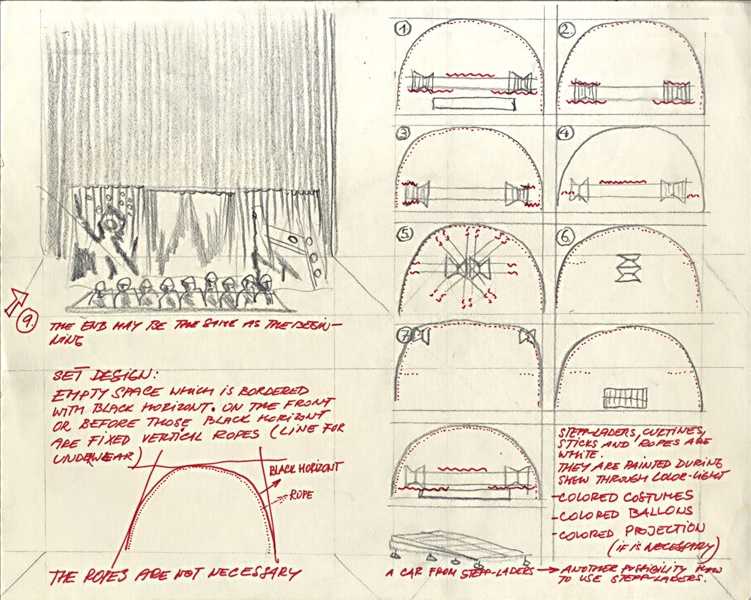 9.
THE END MAY BE THE SAME AS THE BEGIN-
NING
SET DESIGN:
EMPTY SPACE WHICH IS BORDERED
WITH BLACK HORIZONT. ON THE FRONT
OR BEFORE THOSE BLACK HORIZONT
ARE FIXED VERTICAL ROPES (LINE FOR
UNDERWEAR)
BLACK HORIZONT
ROPE
THE ROPES ARE NOT NECESSARY
1
2.
3
4
5.
6.
7.
STEPP-LADERS, CURTINES,
STICKS AND ROPES ARE
WHITE.
THEY ARE PAINTED DURING
SHEW THROUGH COLOR-LIGHT
- COLORED COSTUMES
- COLORED BALLONS
- COLORED PROJECTION
(IF IS NECESSARY)
A CAR FROM STEPP-LADERS → ANOTHER POSSIBILITY HOW
TO USE STEPP-LADERS.